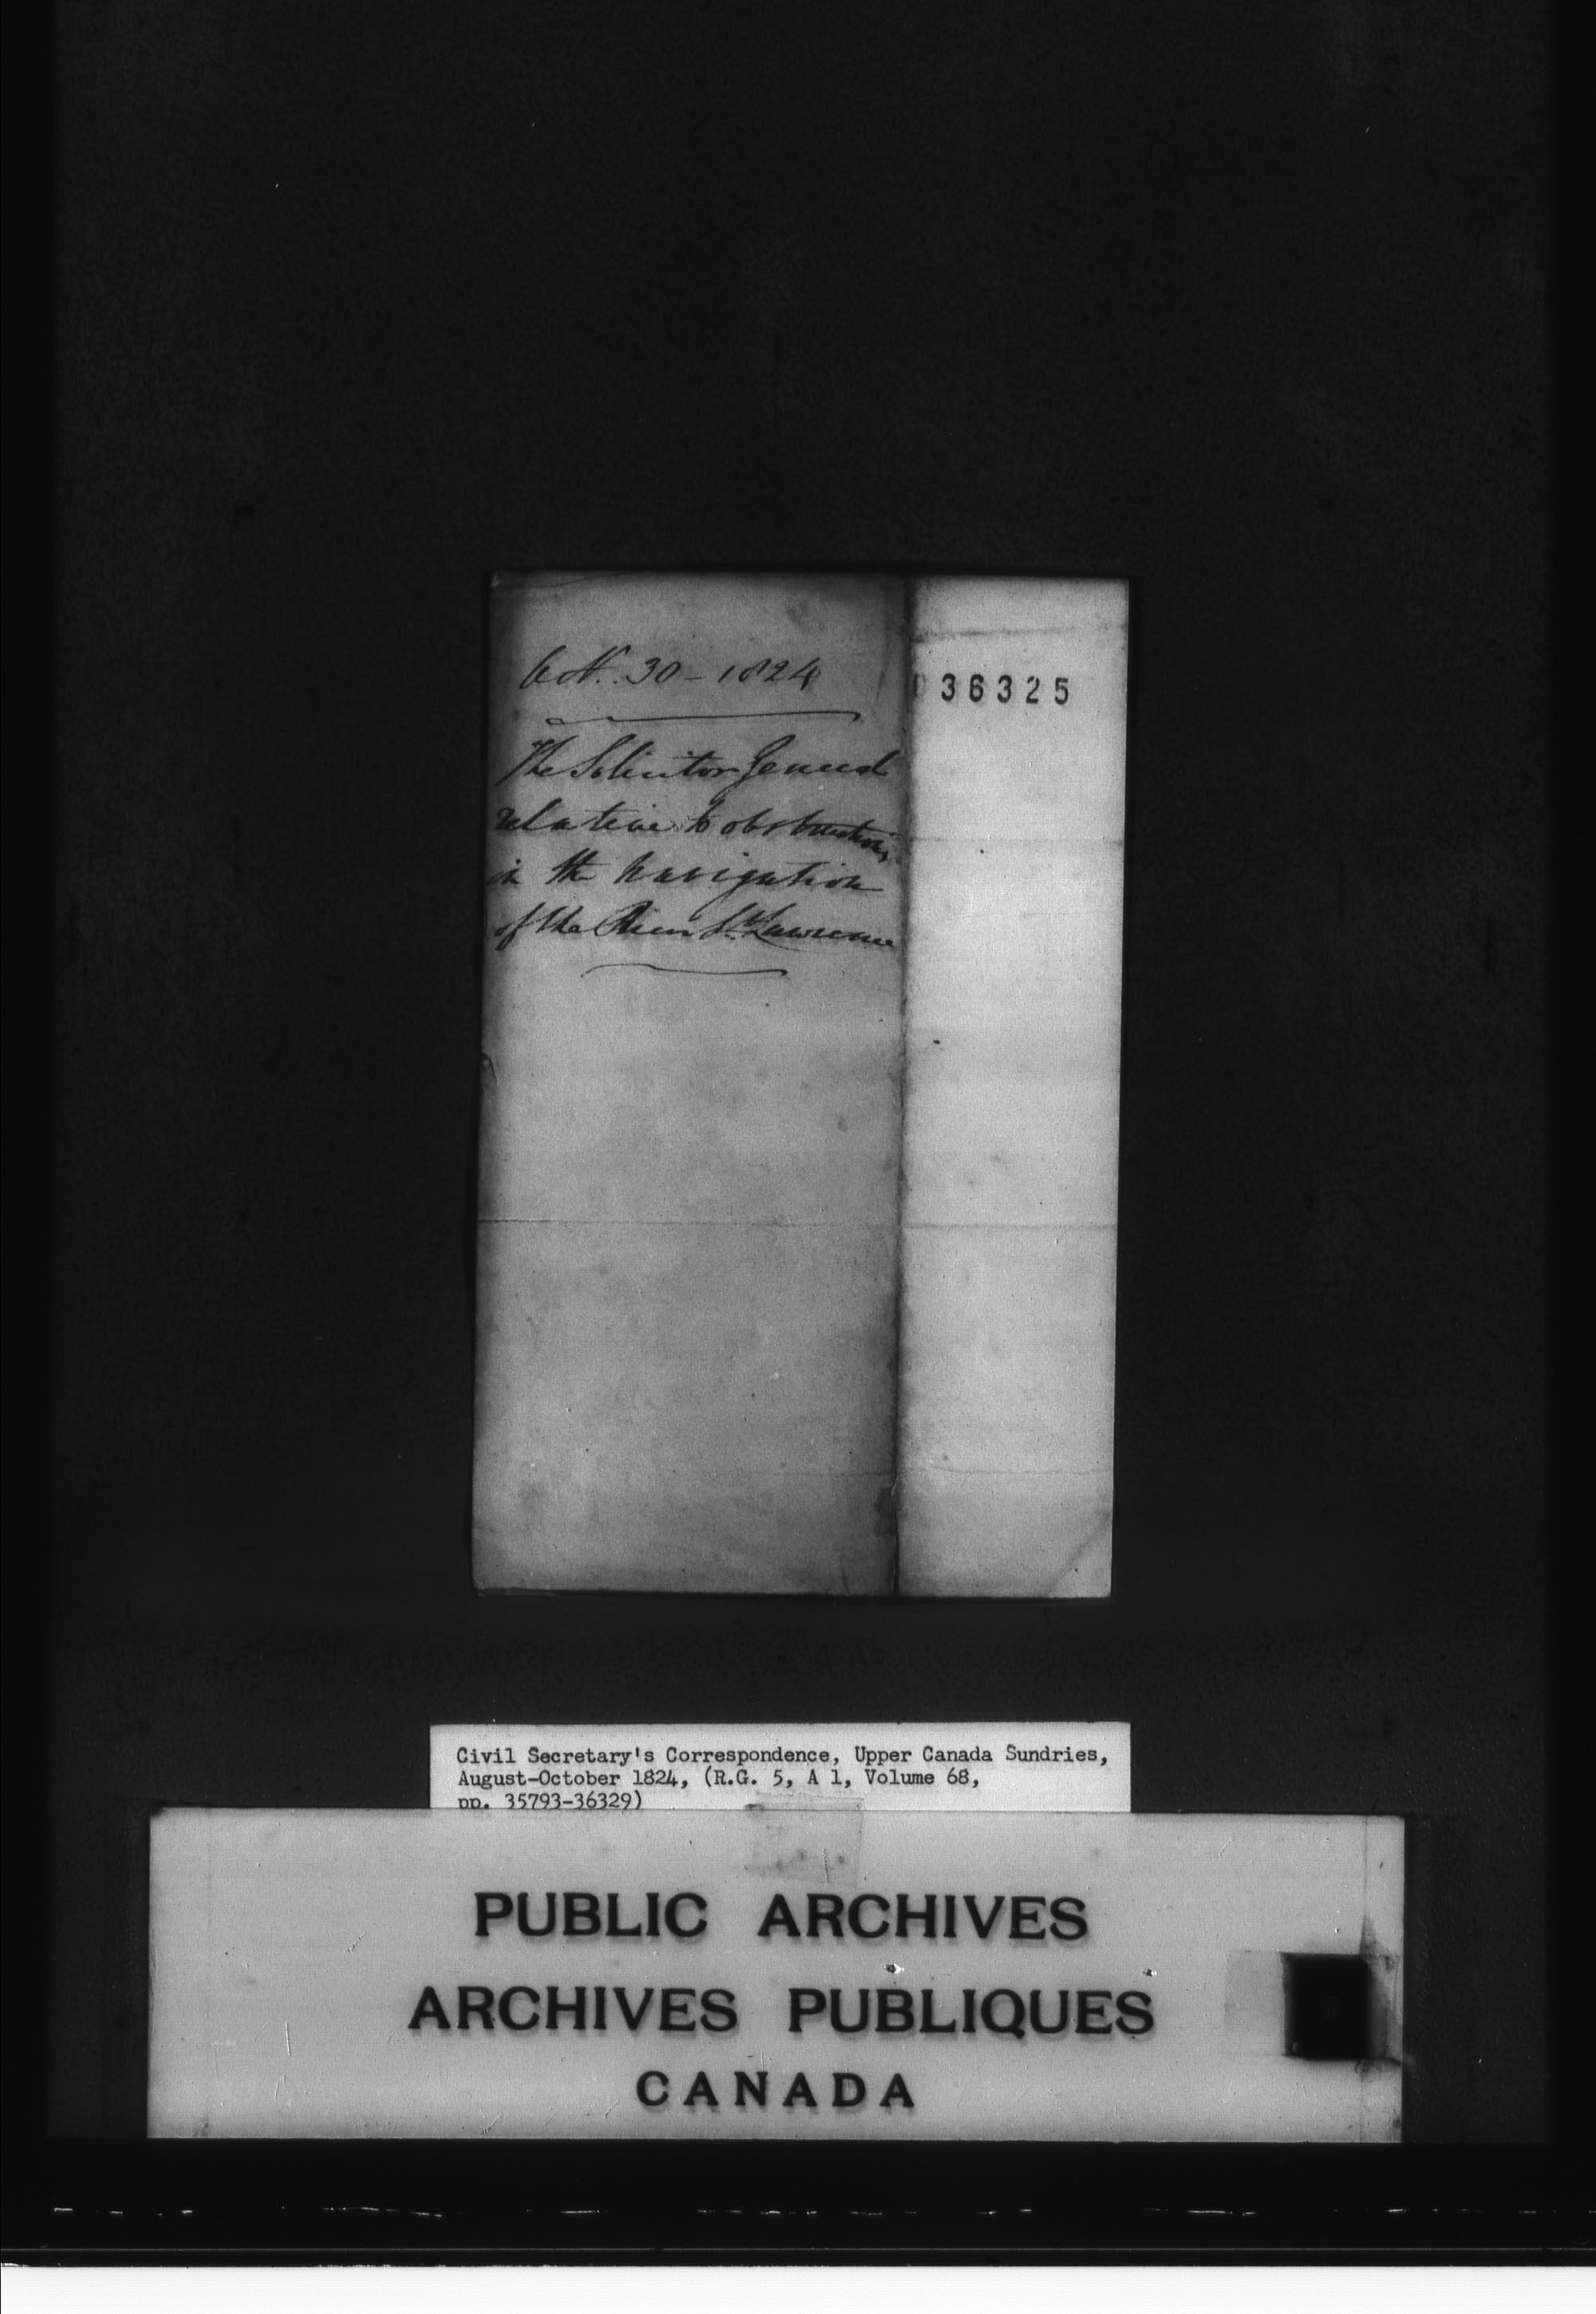 Oct. 30 - 1824
The Solicitor General
relative to obstructions
in the navigation
of the River St. Lawrence
036325
Civil Secretary's Correspondence, Upper Canada Sundries,
August-October 1824, (R.G. 5, A 1, Volume 68,
pp. 35793-36329)
PUBLIC ARCHIVES
ARCHIVES PUBLIQUES
CANADA